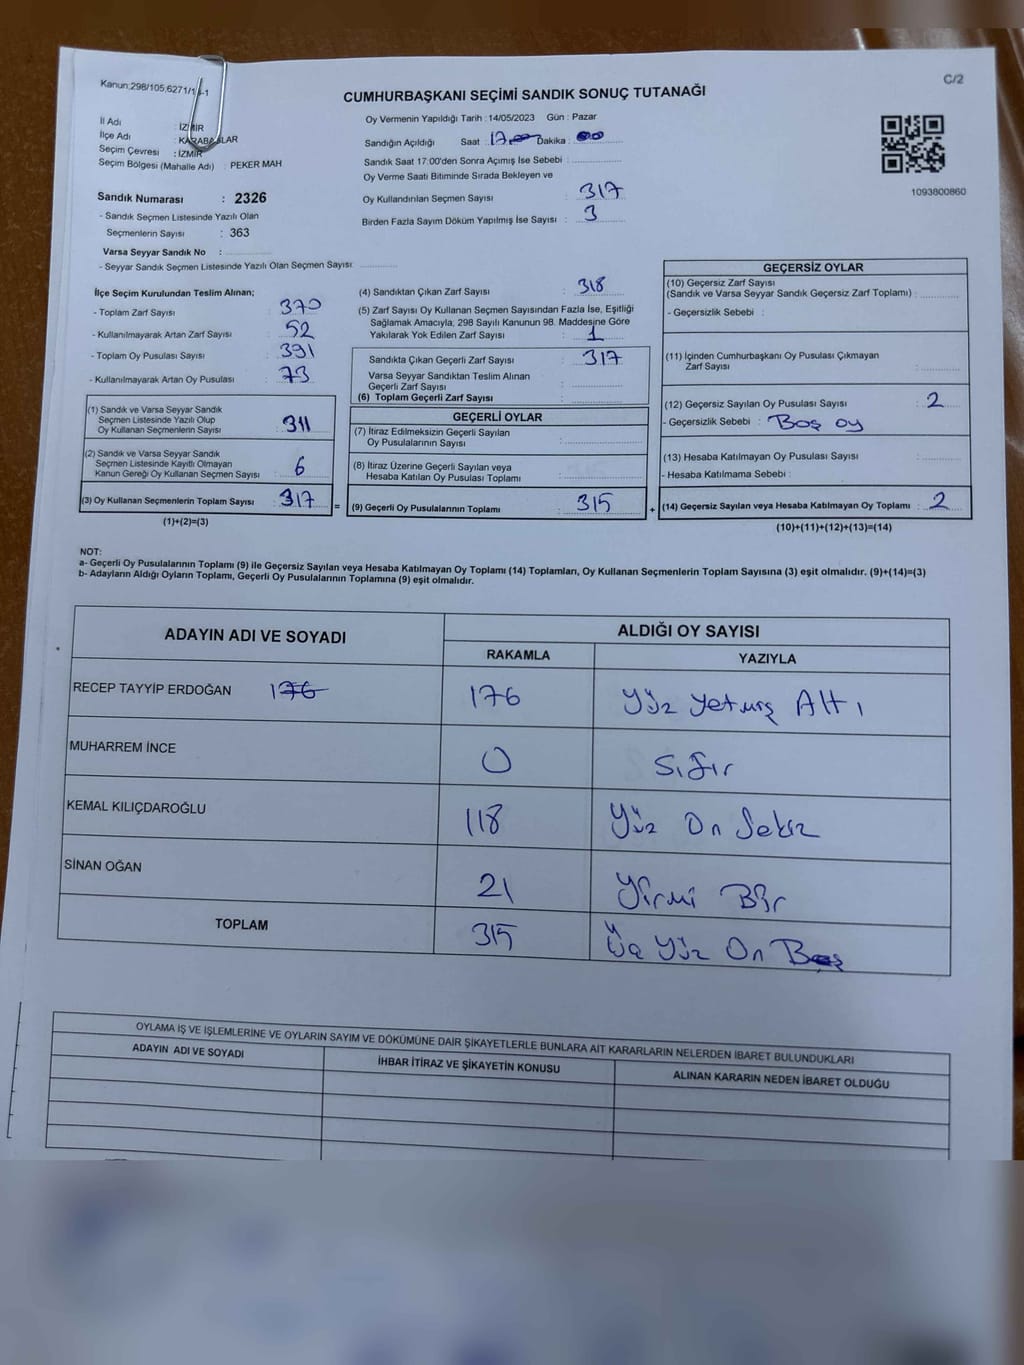 Kanun:298/105;6271/
C/2
CUMHURBAŞKANI SEÇİMİ SANDIK SONUÇ TUTANAĞI
İl Adı : İZMİR
İlçe Adı : KARABAĞLAR
Seçim Çevresi : İZMİR
Seçim Bölgesi (Mahalle Adı) : PEKER MAH
Oy Vermenin Yapıldığı Tarih : 14/05/2023 Gün : Pazar
Sandığın Açıldığı Saat : 17 Dakika : 00
Sandık Saat 17:00'den Sonra Açımış İse Sebebi :
Oy Verme Saati Bitiminde Sırada Bekleyen ve
Oy Kullandırılan Seçmen Sayısı : 317
Birden Fazla Sayım Döküm Yapılmış İse Sayısı : 3
1093800860
Sandık Numarası : 2326
- Sandık Seçmen Listesinde Yazılı Olan
Seçmenlerin Sayısı : 363
Varsa Seyyar Sandık No :
- Seyyar Sandık Seçmen Listesinde Yazılı Olan Seçmen Sayısı:
İlçe Seçim Kurulundan Teslim Alınan;
- Toplam Zarf Sayısı : 370
- Kullanılmayarak Artan Zarf Sayısı : 52
- Toplam Oy Pusulası Sayısı : 391
- Kullanılmayarak Artan Oy Pusulası : 73
(1) Sandık ve Varsa Seyyar Sandık
Seçmen Listesinde Yazılı Olup
Oy Kullanan Seçmenlerin Sayısı : 311
(2) Sandık ve Varsa Seyyar Sandık
Seçmen Listesinde Kayıtlı Olmayan
Kanun Gereği Oy Kullanan Seçmen Sayısı : 6
(3) Oy Kullanan Seçmenlerin Toplam Sayısı : 317 =
(1)+(2)=(3)
(4) Sandıktan Çıkan Zarf Sayısı : 318
(5) Zarf Sayısı Oy Kullanan Seçmen Sayısından Fazla İse, Eşitliği
Sağlamak Amacıyla; 298 Sayılı Kanunun 98. Maddesine Göre
Yakılarak Yok Edilen Zarf Sayısı : 1
Sandıkta Çıkan Geçerli Zarf Sayısı : 317
Varsa Seyyar Sandıktan Teslim Alınan
Geçerli Zarf Sayısı :
(6) Toplam Geçerli Zarf Sayısı :
GEÇERLİ OYLAR
(7) İtiraz Edilmeksizin Geçerli Sayılan
Oy Pusulalarının Sayısı :
(8) İtiraz Üzerine Geçerli Sayılan veya
Hesaba Katılan Oy Pusulası Toplamı :
(9) Geçerli Oy Pusulalarının Toplamı : 315 +
GEÇERSİZ OYLAR
(10) Geçersiz Zarf Sayısı
(Sandık ve Varsa Seyyar Sandık Geçersiz Zarf Toplamı) :
- Geçersizlik Sebebi :
(11) İçinden Cumhurbaşkanı Oy Pusulası Çıkmayan
Zarf Sayısı :
(12) Geçersiz Sayılan Oy Pusulası Sayısı : 2
- Geçersizlik Sebebi : Boş oy
(13) Hesaba Katılmayan Oy Pusulası Sayısı :
- Hesaba Katılmama Sebebi :
(14) Geçersiz Sayılan veya Hesaba Katılmayan Oy Toplamı : 2
(10)+(11)+(12)+(13)=(14)
NOT:
a- Geçerli Oy Pusulalarının Toplamı (9) ile Geçersiz Sayılan veya Hesaba Katılmayan Oy Toplamı (14) Toplamları, Oy Kullanan Seçmenlerin Toplam Sayısına (3) eşit olmalıdır. (9)+(14)=(3)
b- Adayların Aldığı Oyların Toplamı, Geçerli Oy Pusulalarının Toplamına (9) eşit olmalıdır.
ADAYIN ADI VE SOYADI ALDIĞI OY SAYISI
RAKAMLA YAZIYLA
RECEP TAYYİP ERDOĞAN 176 176 Yüz Yetmiş Altı
MUHARREM İNCE 0 Sıfır
KEMAL KILIÇDAROĞLU 118 Yüz On Sekiz
SİNAN OĞAN 21 Yirmi Bir
TOPLAM 315 Üç Yüz On Beş
OYLAMA İŞ VE İŞLEMLERİNE VE OYLARIN SAYIM VE DÖKÜMÜNE DAİR ŞİKAYETLERLE BUNLARA AİT KARARLARIN NELERDEN İBARET BULUNDUKLARI
ADAYIN ADI VE SOYADI İHBAR İTİRAZ VE ŞİKAYETİN KONUSU ALINAN KARARIN NEDEN İBARET OLDUĞU